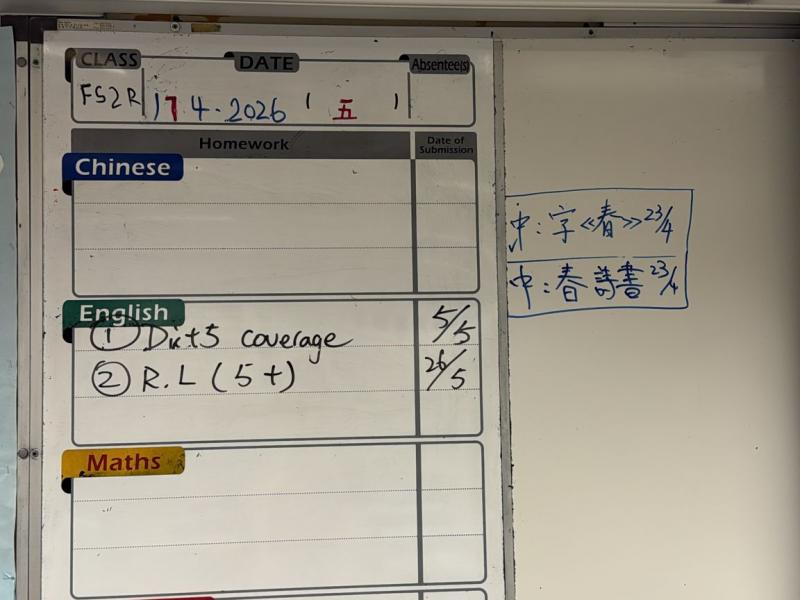 CLASS DATE Absentee(s)
FS2R 17 4.2026 (五)
Homework Date of Submission
Chinese
中:字《春》23/4
中:春 書 23/4
English
① Dict5 coverage 5/5
② R.L (5+) 26/5
Maths